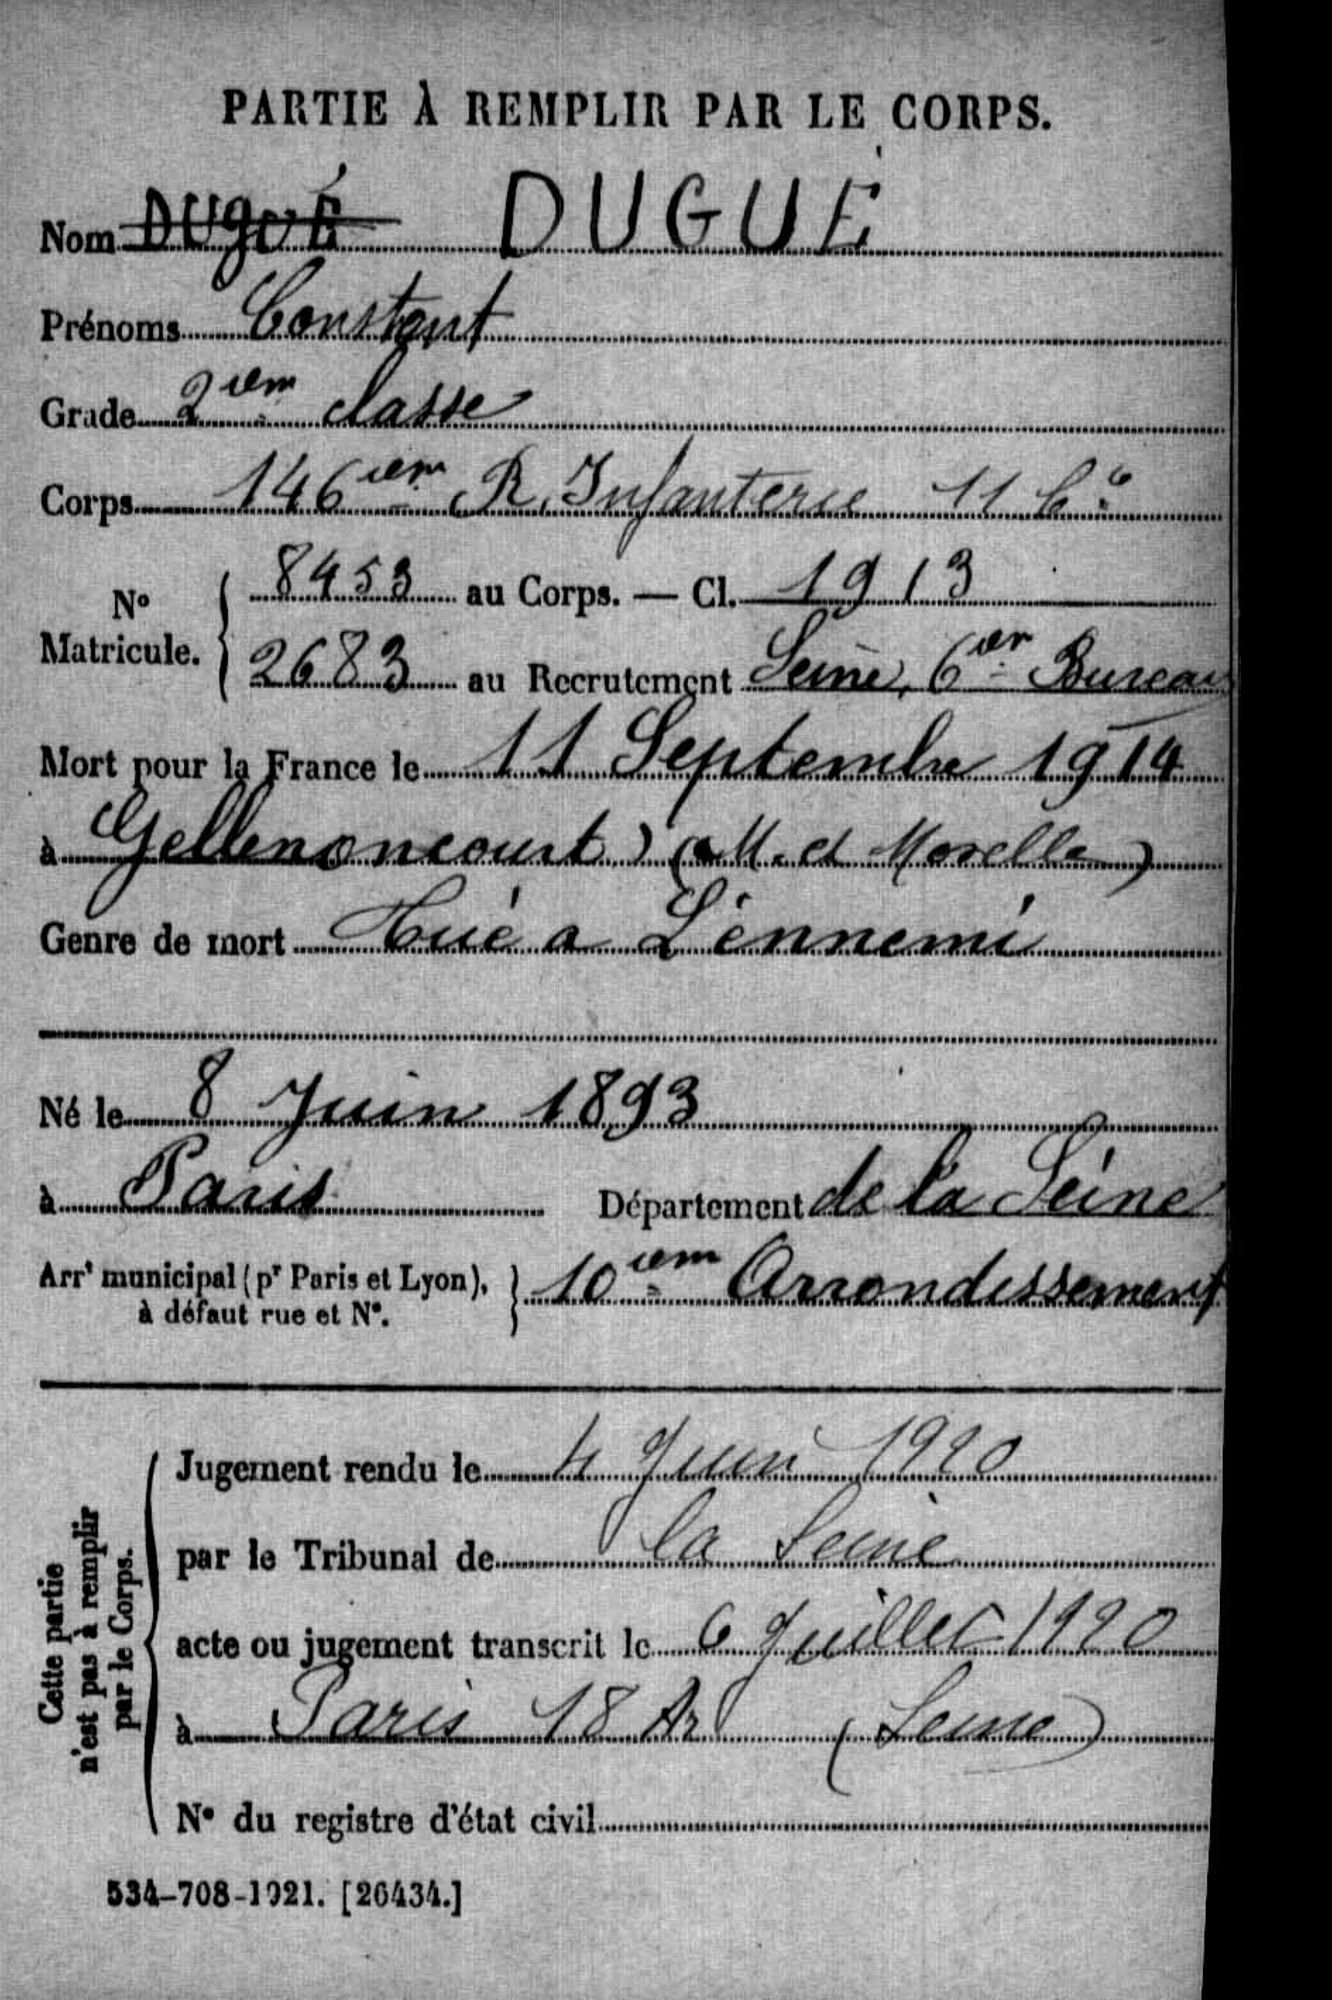 PARTIE À REMPLIR PAR LE CORPS.
Nom DUgUÉ DUGUÉ
Prénoms Constant
Grade 2 iem classe
Corps 146 iem R. Infanterie 11 Cie
No Matricule. { 8453 au Corps. — Cl. 1913
2683 au Recrutement Seine, 6er Bureau
Mort pour la France le 11 Septembre 1914
à Gellenoncourt (M. et Moselle)
Genre de mort Tué a L'énnemi
Né le 8 Juin 1893
à Paris Département de la Seine
Arrt municipal (pr Paris et Lyon), à défaut rue et No. } 10 iem Arrondissement
Cette partie n'est pas à remplir par le Corps.
Jugement rendu le 4 Juin 1920
par le Tribunal de la Seine
acte ou jugement transcrit le 6 Juillet 1920
à Paris 18 Ar (Seine)
No du registre d'état civil
534-708-1921. [26434.]